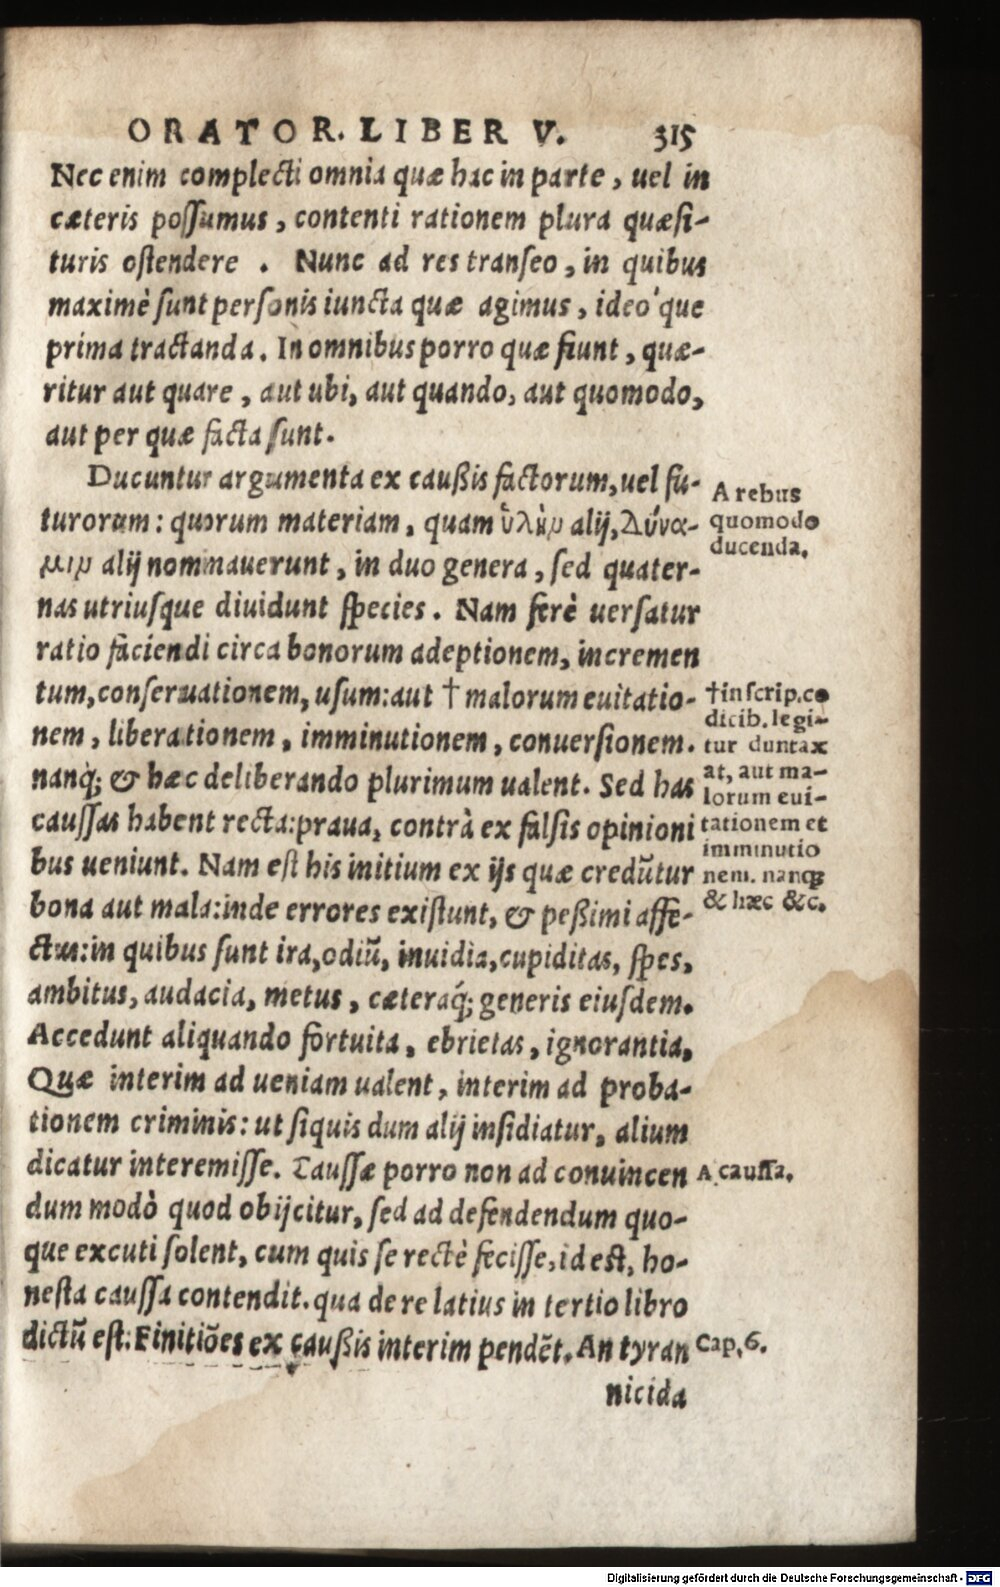 ORATOR. LIBER V. 315
Nec enim complecti omnia quæ hac in parte, uel in
cæteris possumus, contenti rationem plura quæsi-
turis ostendere. Nunc ad res transeo, in quibus
maximè sunt personis iuncta quæ agimus, ideo'que
prima tractanda. In omnibus porro quæ fiunt, quæ-
ritur aut quare, aut ubi, aut quando, aut quomodo,
aut per quæ facta sunt.
Ducuntur argumenta ex caußis factorum, uel fu-
turorum: quorum materiam, quam ὕλὴν alij, Δύνα-
μιν alij nominauerunt, in duo genera, sed quater-
nas utriusque diuidunt species. Nam ferè uersatur
ratio faciendi circa bonorum adeptionem, incremen
tum, conseruationem, usum: aut † malorum euitatio-
nem, liberationem, imminutionem, conuersionem.
nanq; & hæc deliberando plurimum ualent. Sed has
caussas habent recta: praua, contrà ex falsis opinioni
bus ueniunt. Nam est his initium ex ijs quæ credūtur
bona aut mala: inde errores existunt, & peßimi affe-
ctus: in quibus sunt ira, odiū, inuidia, cupiditas, spes,
ambitus, audacia, metus, cæteraq́; generis eiusdem.
Accedunt aliquando fortuita, ebrietas, ignorantia,
Quæ interim ad ueniam ualent, interim ad proba-
tionem criminis: ut siquis dum alij insidiatur, alium
dicatur interemisse. Caussæ porro non ad conuincen
dum modò quod obijcitur, sed ad defendendum quo-
que excuti solent, cum quis se rectè fecisse, id est, ho-
nesta caussa contendit. qua de re latius in tertio libro
dictū est. Finitiōes ex caußis interim pendēt. An tyran
nicida
A rebus
quomodo
ducenda.
†in scrip.co
dicib. legi-
tur duntax
at, aut ma-
lorum eui-
tationem et
imminutio
nem. nanq;
& hæc &c.
A caussa.
Cap. 6.
Digitalisierung gefördert durch die Deutsche Forschungsgemeinschaft - DFG